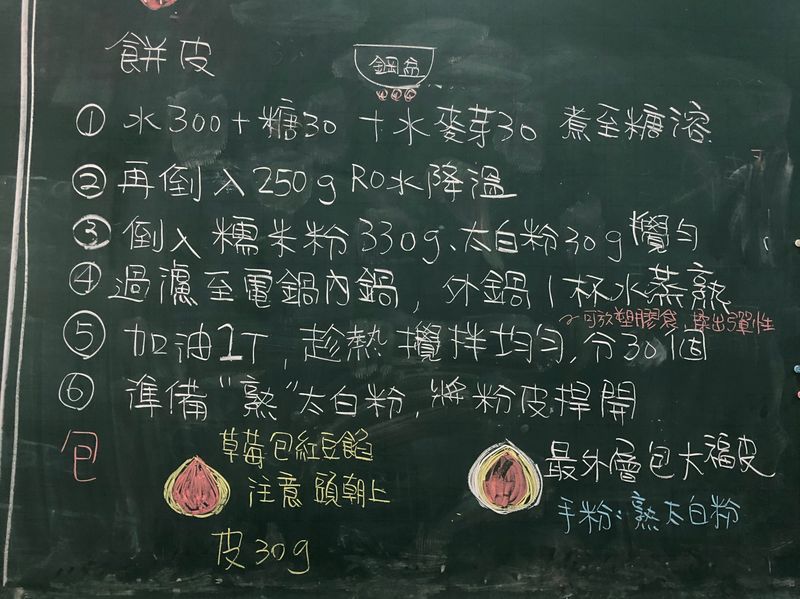 餅皮
鋼盆
① 水300+糖30 +水麥芽30 煮至糖溶
② 再倒入250g RO水降溫
③ 倒入糯米粉330g、太白粉30g攪勻
④ 過濾至電鍋內鍋，外鍋1杯水蒸熟
→可放塑膠袋，揉出彈性
⑤ 加油1T，趁熱攪拌均勻，分30個
⑥ 準備"熟"太白粉，將粉皮捍開
包
草莓包紅豆餡
注意 頭朝上
皮30g
最外層包大福皮
手粉：熟太白粉